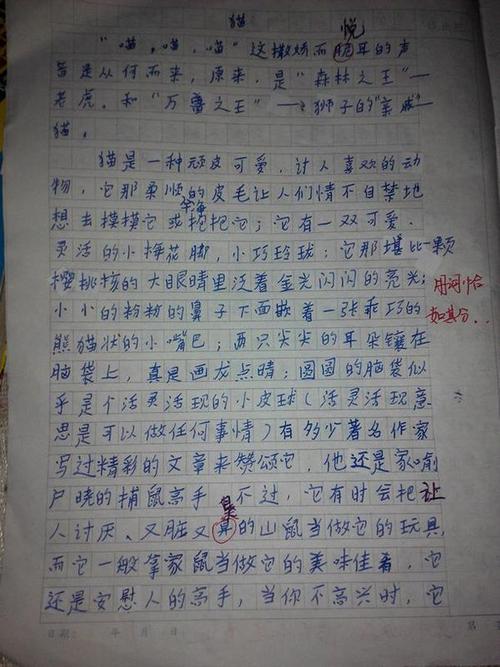 猫
悦
“喵，喵，喵”这撒娇而脱耳的声
音是从何而来，原来，是“森林之王”—
老虎。和“万兽之王”—狮子的“亲戚”—
猫。
猫是一种顽皮可爱，讨人喜欢的动
物，它那柔顺的皮毛让人们情不自禁地
想去摸摸它或抱抱它；它有一双可爱、
灵活的小梅花脚，小巧玲珑；它那堪比一颗
樱桃核的大眼睛里泛着金光闪闪的亮光；
用词恰
小小的粉粉的鼻子下面嵌着一张乖巧的
如其分..
熊猫状的小嘴巴；两只尖尖的耳朵镶在
脑袋上，真是画龙点睛；圆圆的脑袋似
乎是个活灵活现的小皮球（活灵活现意
思是可以做任何事情）有多少著名作家
写过精彩的文章来赞颂它，他还是家喻
户晓的捕鼠高手 不过，它有时会把让
臭
人讨厌、又脏又的山鼠当做它的玩具，
而它一般拿家鼠当做它的美味佳肴，它
还是安慰人的高手，当你不高兴时，它
日期： 年 月 日
第